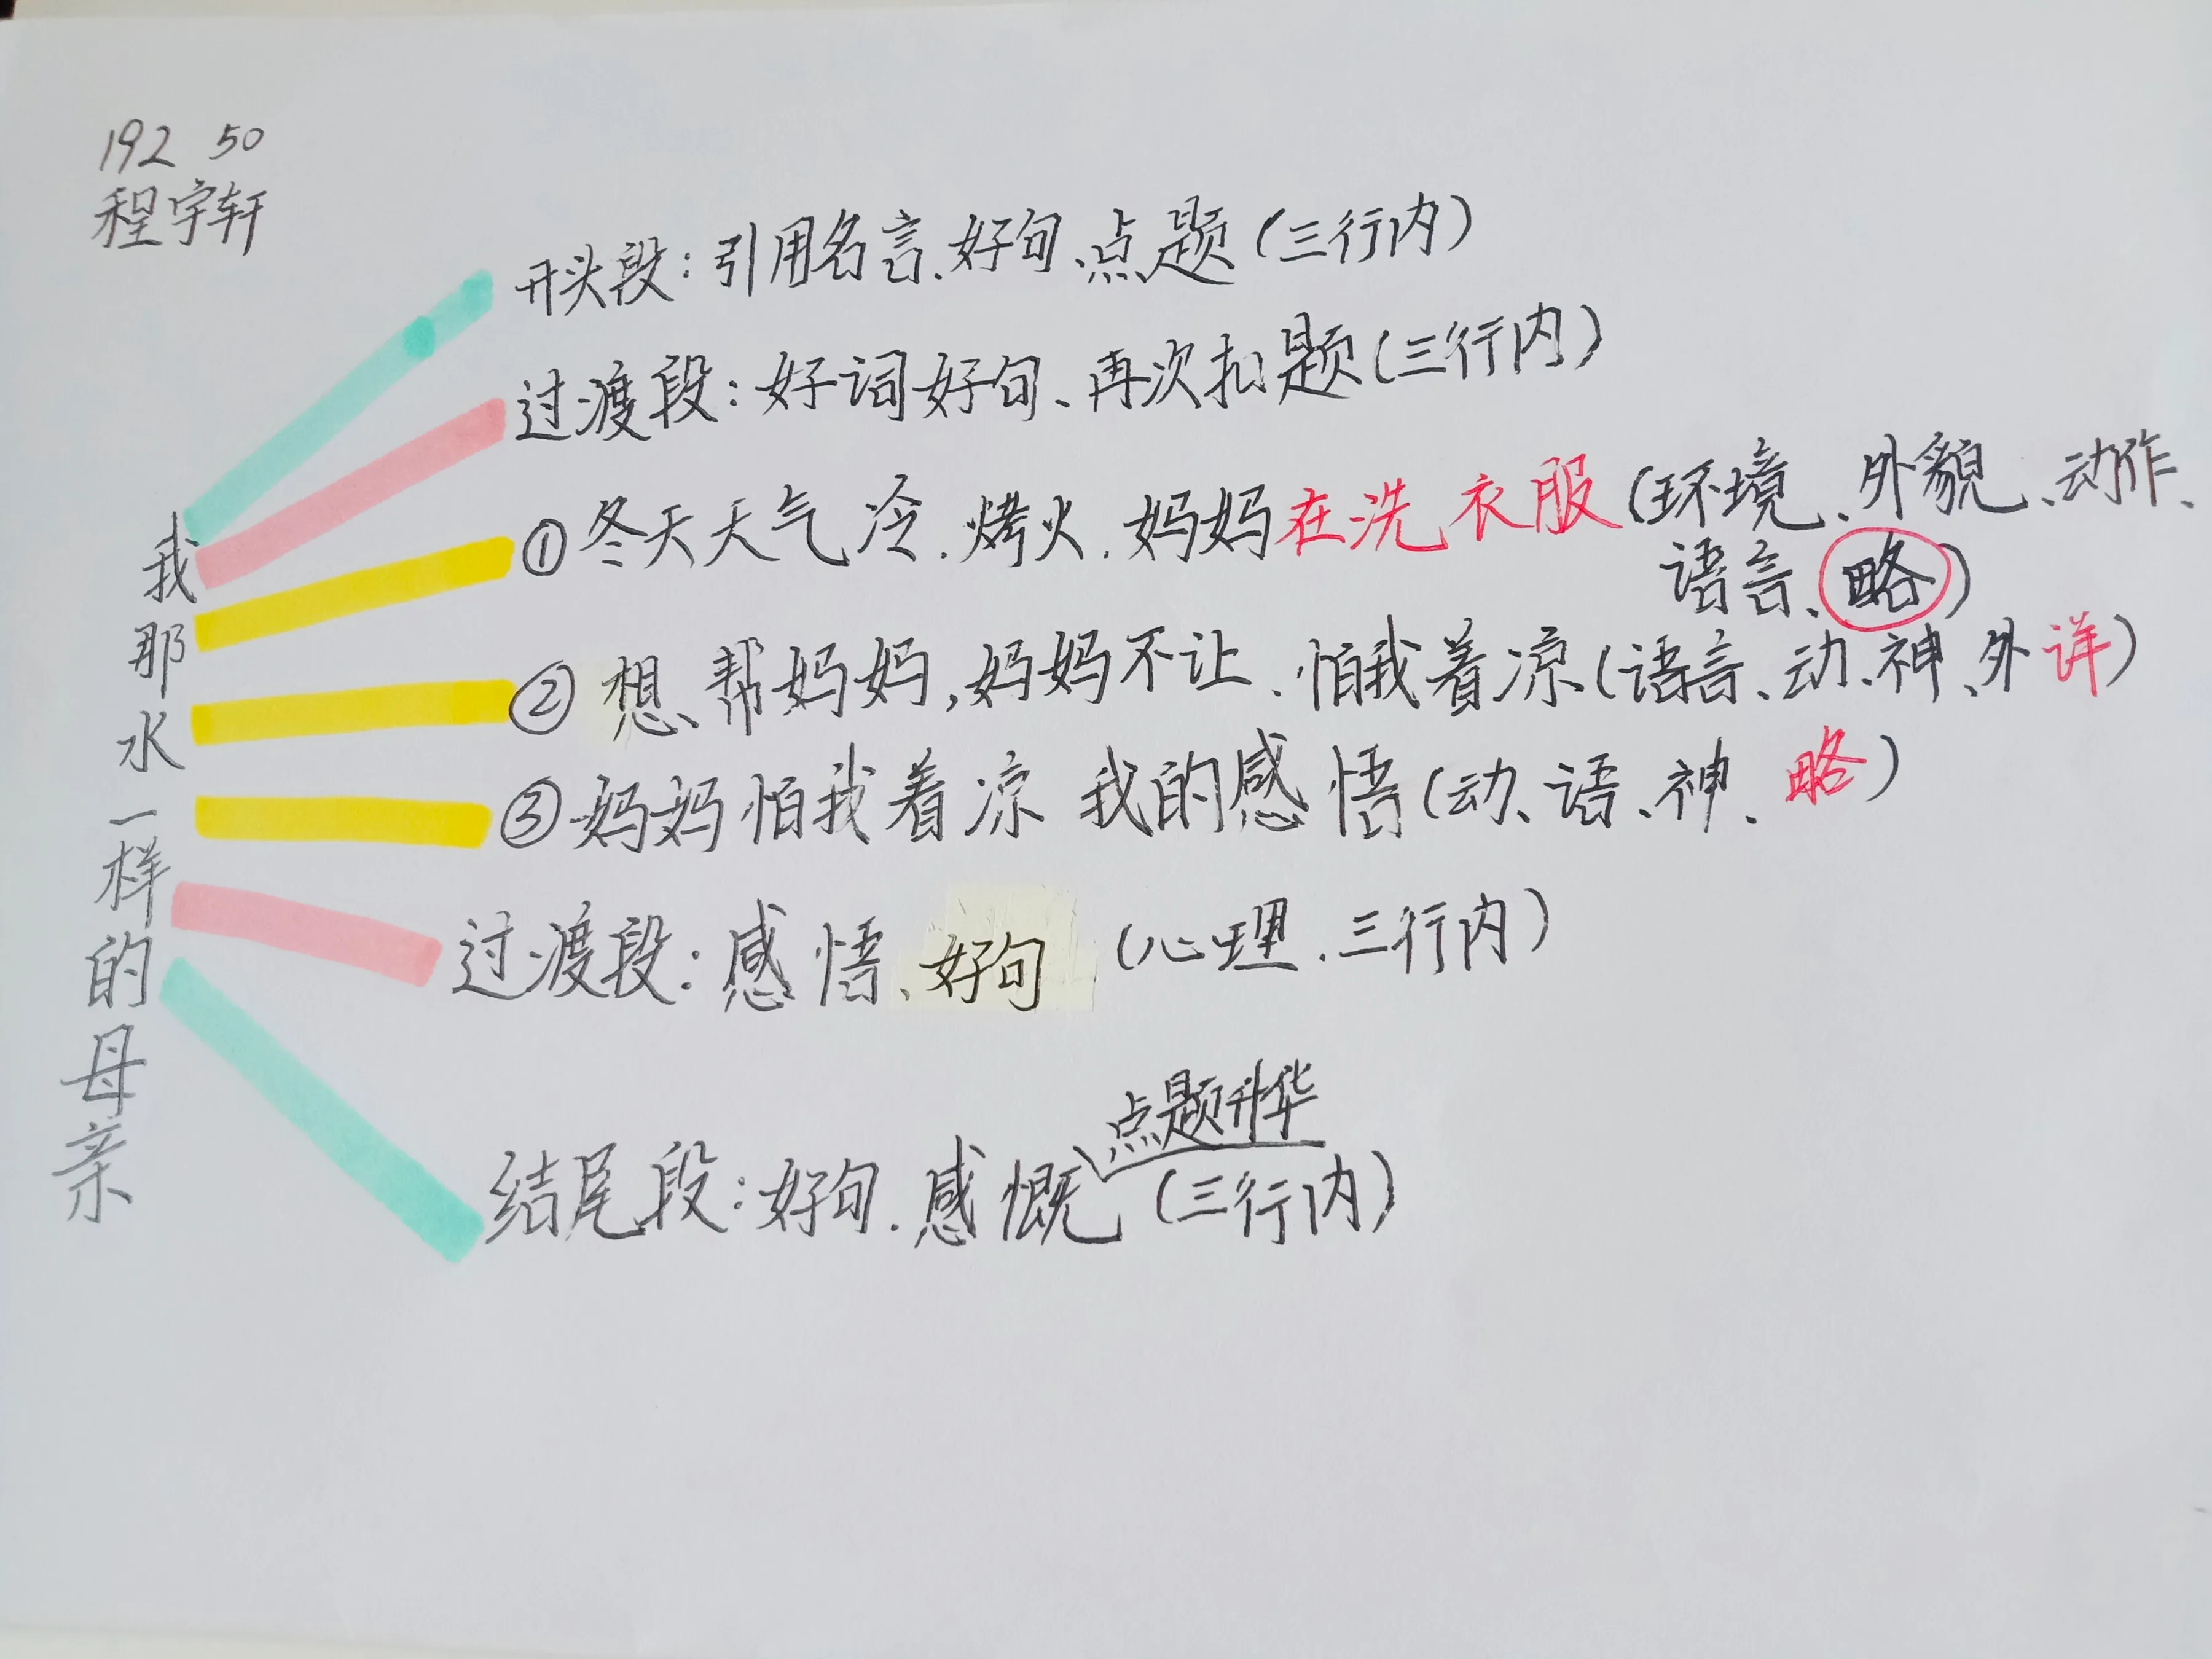 192 50
程宇轩
我那水一样的母亲
开头段：引用名言、好句、点题（三行内）
过渡段：好词好句、再次扣题（三行内）
①冬天天气冷．烤火．妈妈在洗衣服（环境、外貌、动作、
语言、略）
②想、帮妈妈，妈妈不让、怕我着凉（语言、动、神、外详）
③妈妈怕我着凉 我的感悟（动、语、神、略）
过渡段：感悟、好句（心理．三行内）
点题升华
结尾段：好句．感慨（三行内）